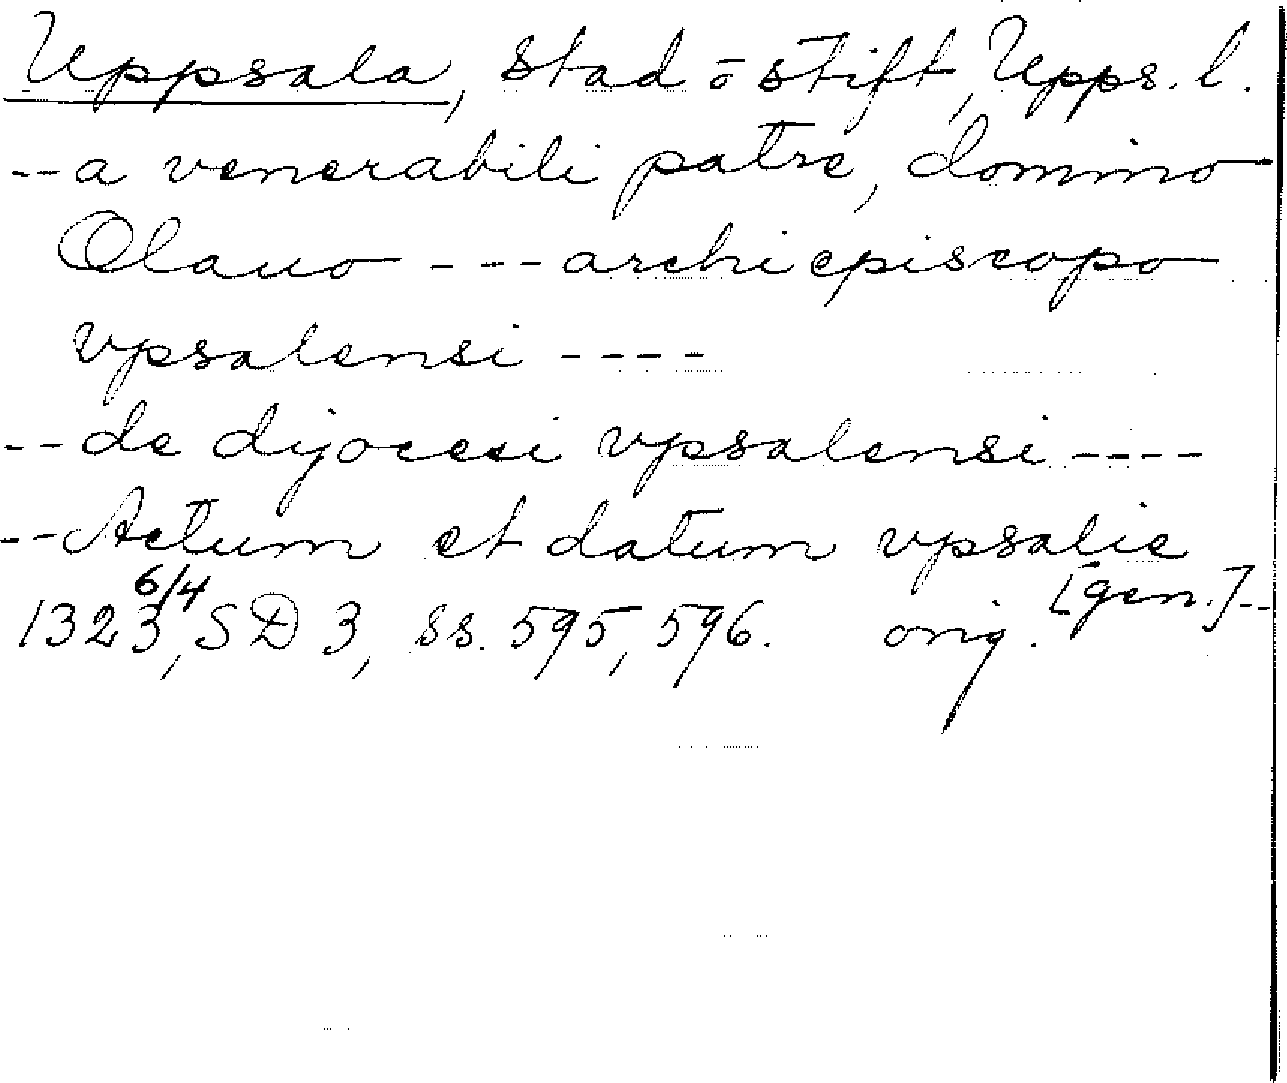 Uppsala, stad o stift, Upps. l.
--a venerabili patre, domino
Olauo --- archiepiscopo
vpsalensi ----
--de dijocesi vpsalensi ----
--Actum et datum vpsalie
[gen.]--
1323 6/4, SD 3, ss. 595, 596. orig.